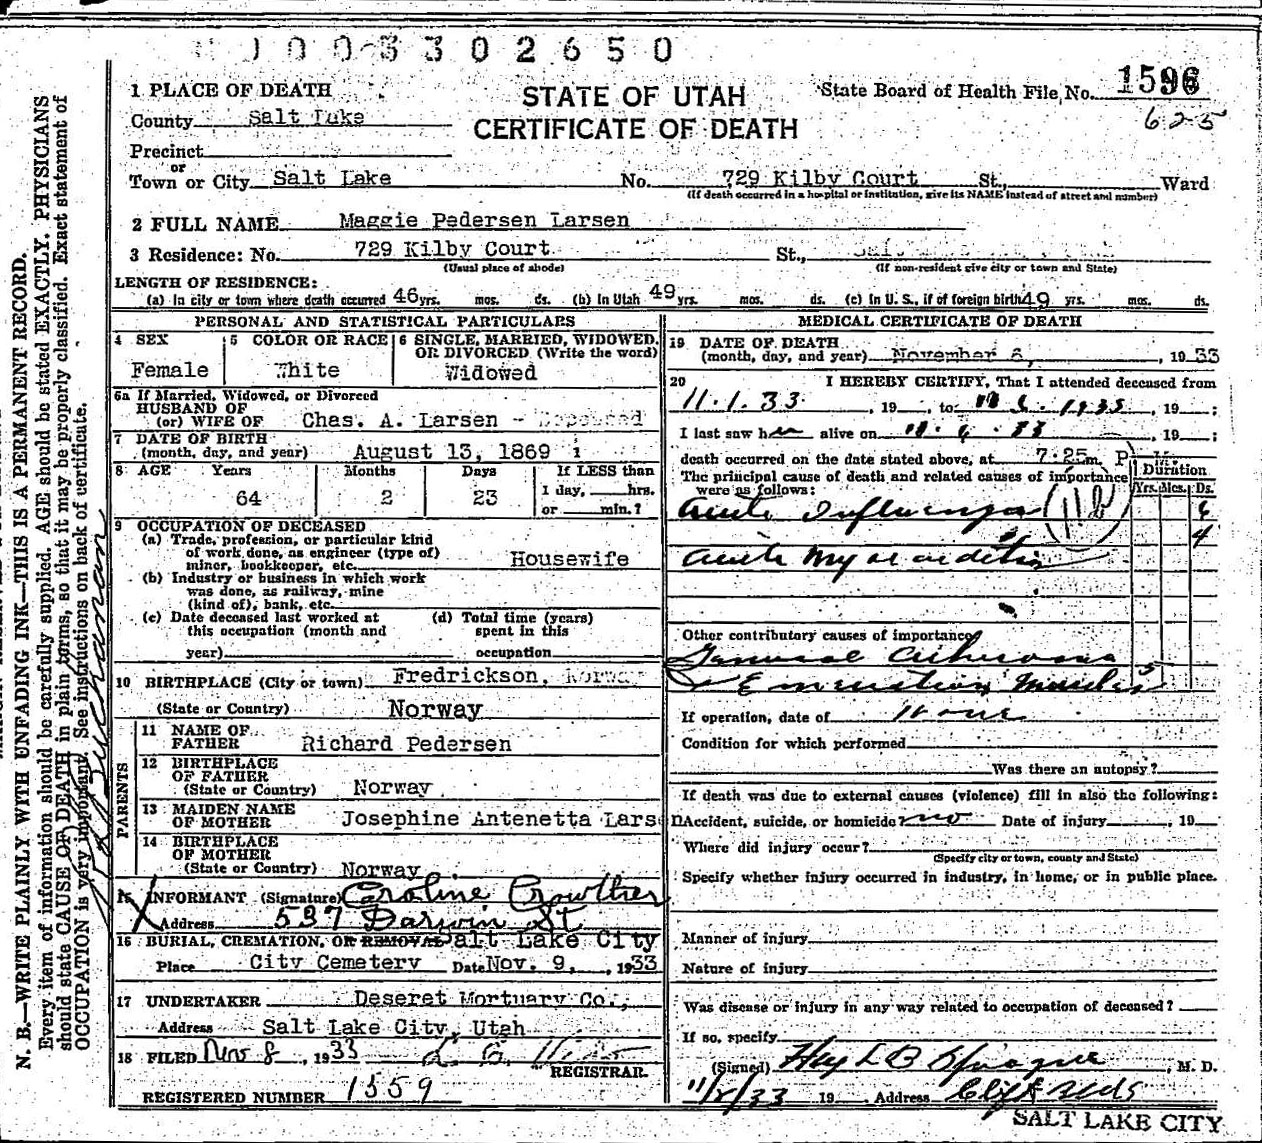 003302650
1 PLACE OF DEATH
STATE OF UTAH
CERTIFICATE OF DEATH
State Board of Health File No. 1596
625
County Salt Lake
Precinct
or
Town or City Salt Lake No. 729 Kilby Court St., Ward
(If death occurred in a hospital or institution, give its NAME instead of street and number)
2 FULL NAME Maggie Pedersen Larsen
3 Residence: No. 729 Kilby Court St.,
(Usual place of abode) (If non-resident give city or town and State)
LENGTH OF RESIDENCE:
(a) In city or town where death occurred 46 yrs. mos. ds. (b) In Utah 49 yrs. mos. ds. (c) In U. S., if of foreign birth 49 yrs. mos. ds.
PERSONAL AND STATISTICAL PARTICULARS
4 SEX
Female
5 COLOR OR RACE
White
6 SINGLE, MARRIED, WIDOWED, OR DIVORCED (Write the word)
Widowed
6a If Married, Widowed, or Divorced
HUSBAND OF
(or) WIFE OF Chas. A. Larsen - Deceased
7 DATE OF BIRTH
(month, day, and year) August 13, 1869
8 AGE Years Months Days If LESS than
64 2 23 1 day, hrs.
or min.?
9 OCCUPATION OF DECEASED
(a) Trade, profession, or particular kind
of work done, as engineer (type of)
miner, bookkeeper, etc. Housewife
(b) Industry or business in which work
was done, as railway, mine
(kind of), bank, etc.
(c) Date deceased last worked at
this occupation (month and
year)
(d) Total time (years)
spent in this
occupation
10 BIRTHPLACE (City or town) Fredrickson, Norway
(State or Country) Norway
PARENTS
11 NAME OF
FATHER Richard Pedersen
12 BIRTHPLACE
OF FATHER
(State or Country) Norway
13 MAIDEN NAME
OF MOTHER Josephine Antenetta Larsen
14 BIRTHPLACE
OF MOTHER
(State or Country) Norway
15 INFORMANT (Signature) Caroline Crowther
Address 537 Darwin St
16 BURIAL, CREMATION, OR REMOVAL Salt Lake City
Place City Cemetery Date Nov. 9, 1933
17 UNDERTAKER Deseret Mortuary Co.,
Address Salt Lake City, Utah
18 FILED Nov 8, 1933
REGISTRAR
REGISTERED NUMBER 1559
MEDICAL CERTIFICATE OF DEATH
19 DATE OF DEATH
(month, day, and year) November 6, 1933
20 I HEREBY CERTIFY, That I attended deceased from
11.1.33, 19 , to , 19 ;
I last saw her alive on 11.6.33, 19 ;
death occurred on the date stated above, at 7:25 m. P
The principal cause of death and related causes of importance
were as follows:
Duration
Yrs. Mos. Ds.
Acute Influenza (11b) 6
Acute Myocarditis 4
Other contributory causes of importance
General
Muscles
If operation, date of None
Condition for which performed
Was there an autopsy?
If death was due to external causes (violence) fill in also the following:
Accident, suicide, or homicide no Date of injury , 19
Where did injury occur?
(Specify city or town, county and State)
Specify whether injury occurred in industry, in home, or in public place.
Manner of injury
Nature of injury
Was disease or injury in any way related to occupation of deceased?
If so, specify
(Signed) Sprague, M. D.
11/8/33 19 Address Clift Bldg
SALT LAKE CITY
N. B.—WRITE PLAINLY WITH UNFADING INK—THIS IS A PERMANENT RECORD.
Every item of information should be carefully supplied. AGE should be stated EXACTLY. PHYSICIANS
should state CAUSE OF DEATH in plain terms, so that it may be properly classified. Exact statement of
OCCUPATION is very important. See instructions on back of certificate.